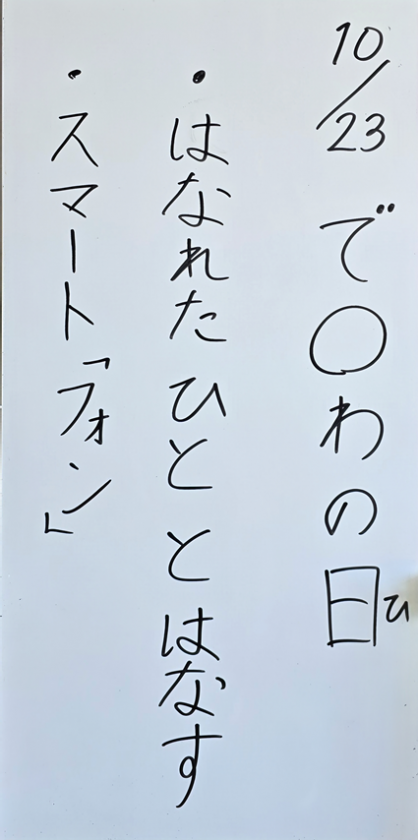 10/23 で〇わの日ひ
・はなれたひととはなす
・スマート「フォン」